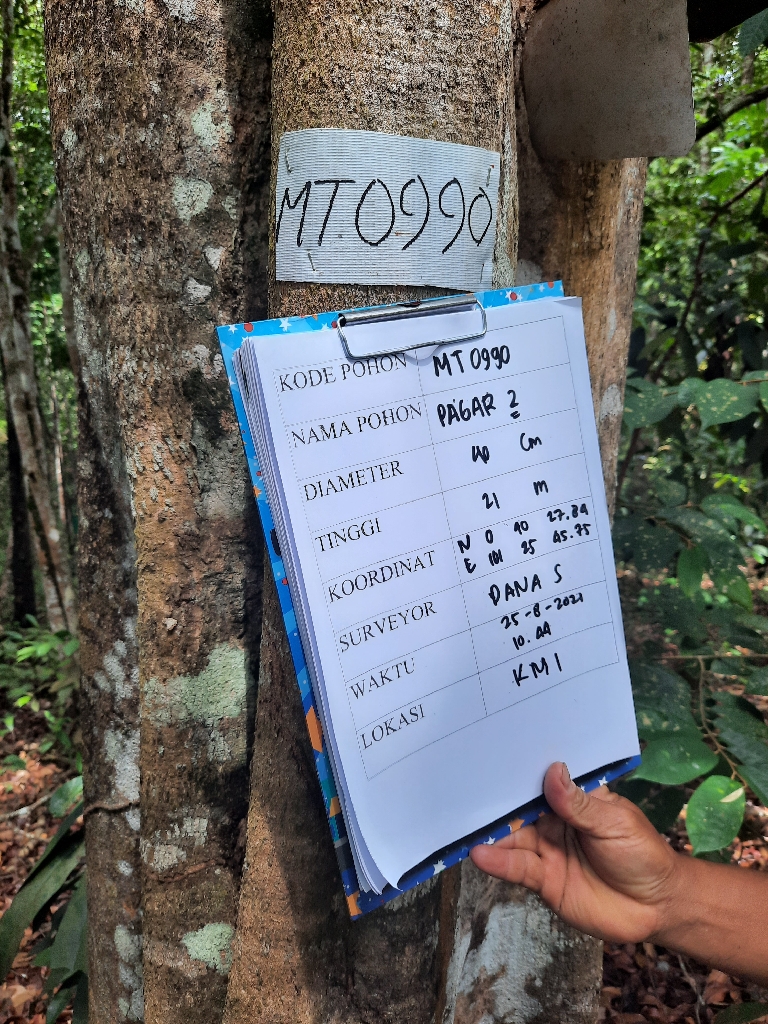 MT0990
KODE POHON MT0990
NAMA POHON PAGAR 2
DIAMETER 40 Cm
TINGGI 21 m
KOORDINAT N 0 40 27.84
E 101 25 45.75
SURVEYOR DANA S
WAKTU 25-8-2021
10.44
LOKASI KM1